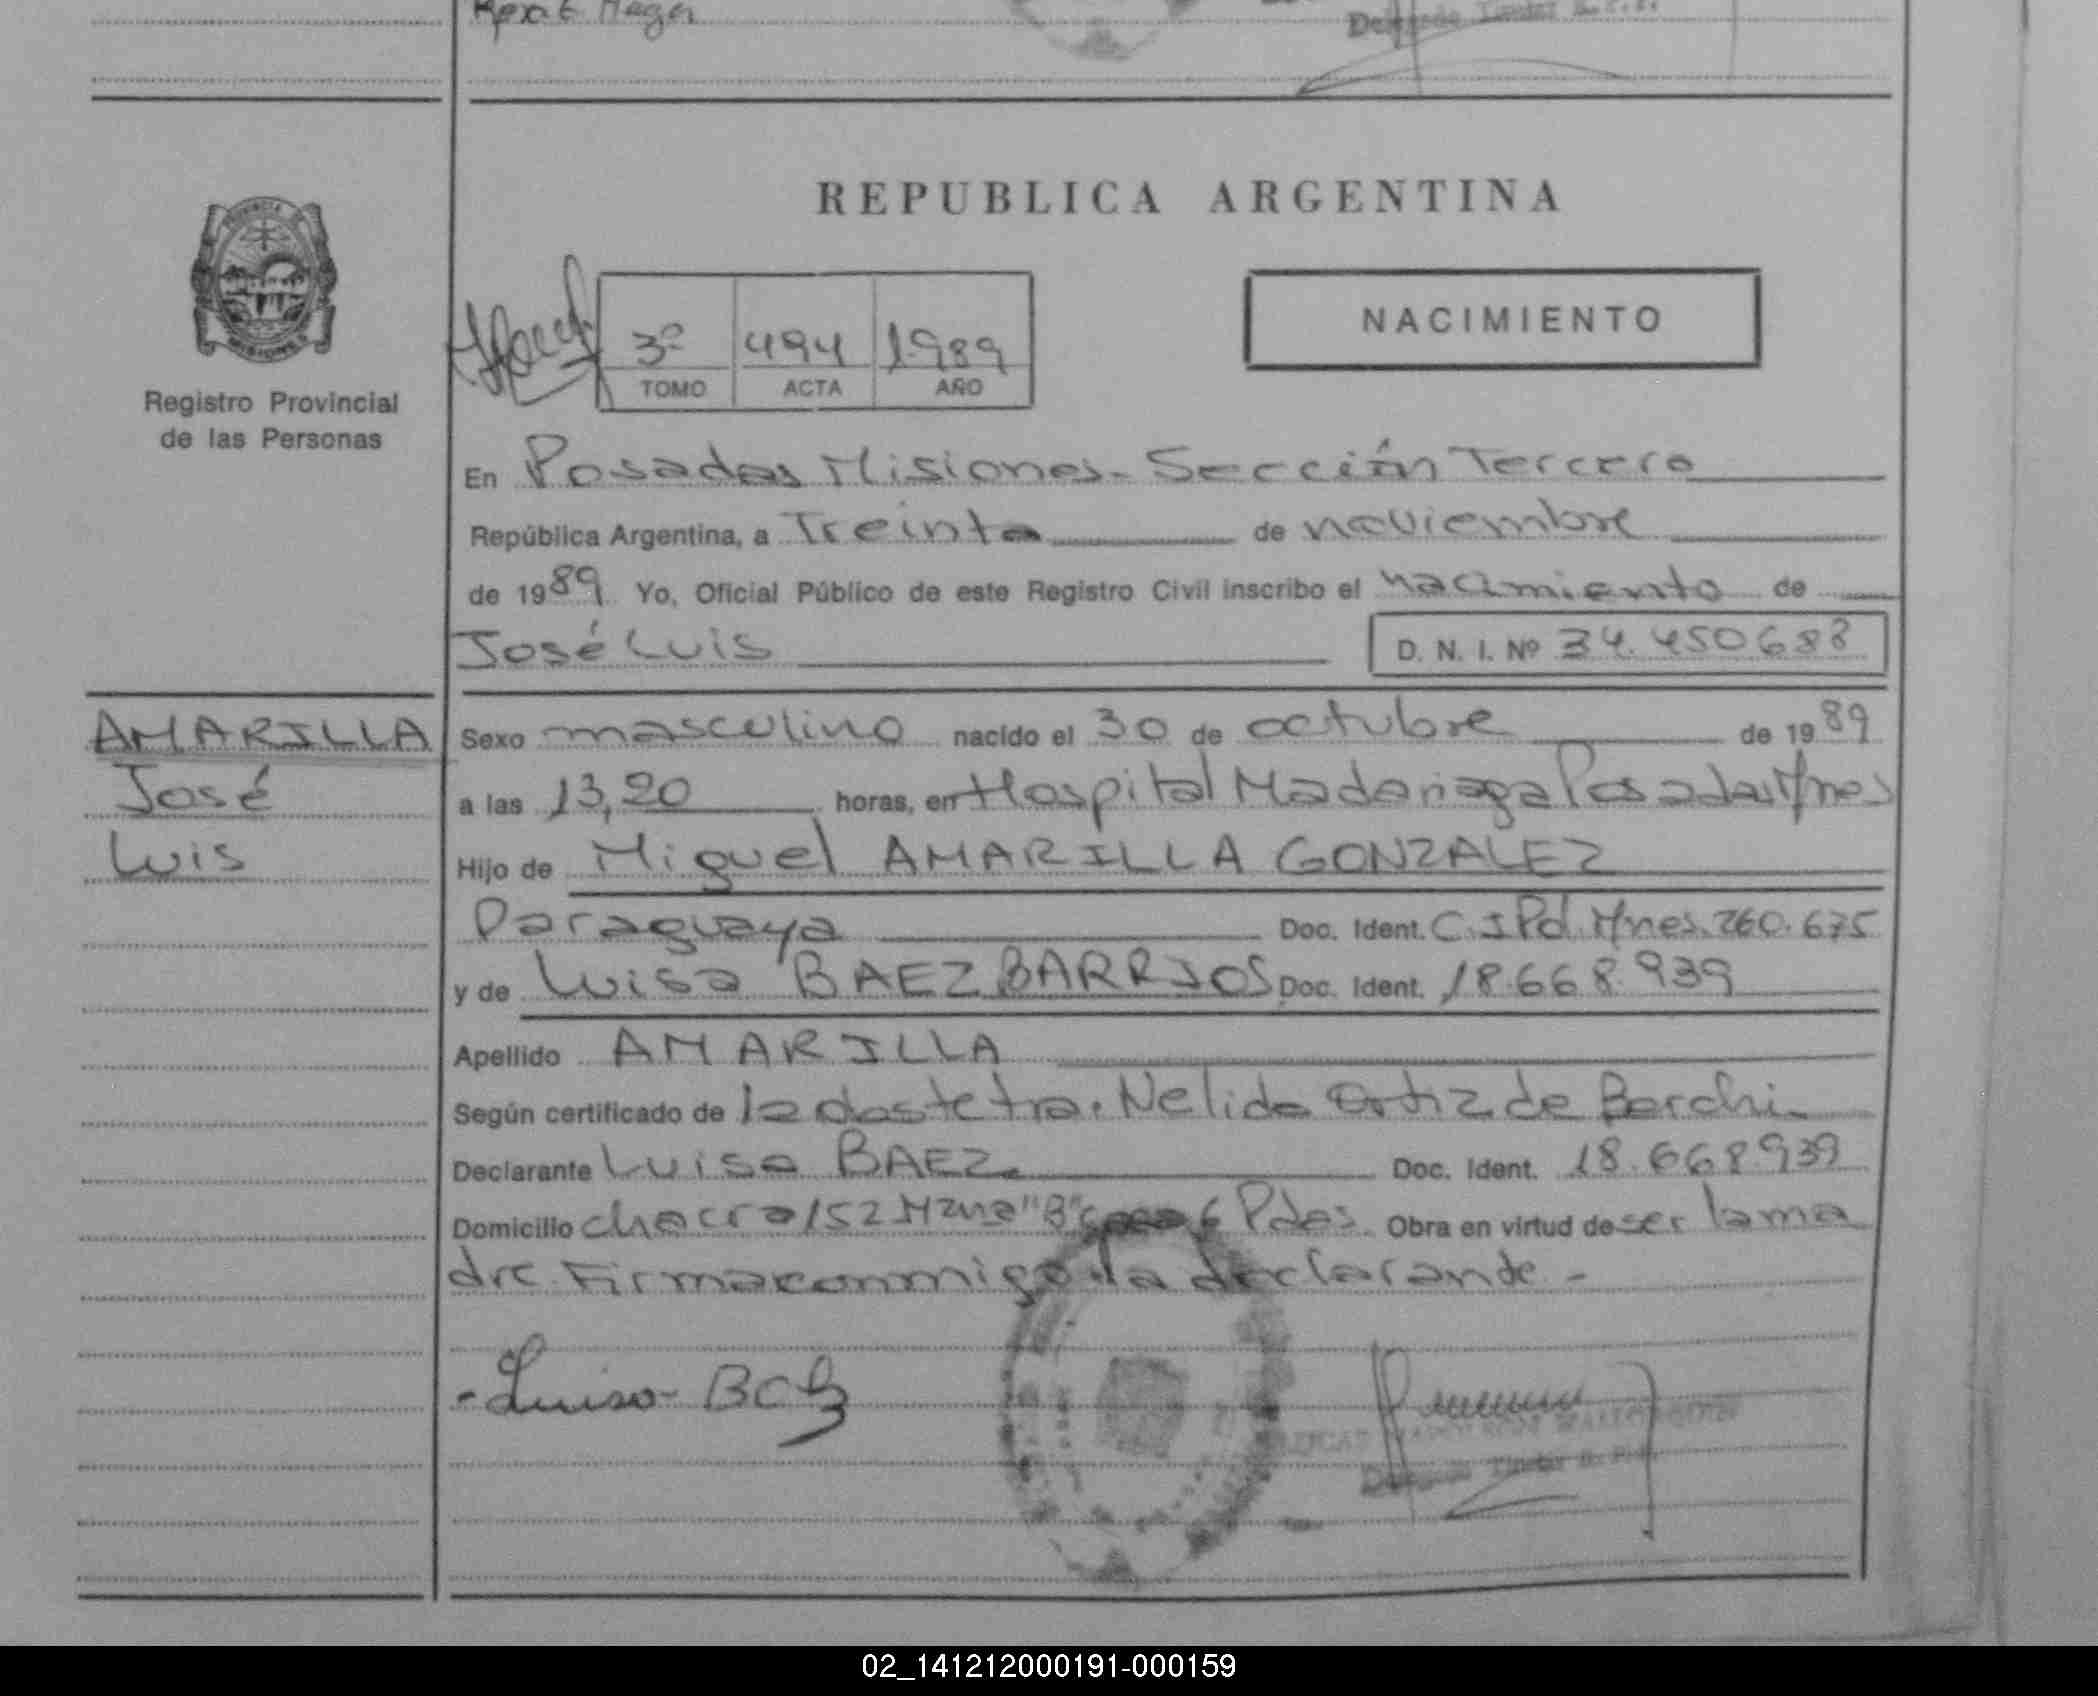 REPUBLICA ARGENTINA
NACIMIENTO
3º 494 1989
TOMO ACTA AÑO
Registro Provincial
de las Personas
En Posadas Misiones - Sección Tercera
República Argentina, a Treinta de noviembre
de 1989 Yo, Oficial Público de este Registro Civil inscribo el nacimiento de
José Luis D. N. I. Nº 34.450688
AMARILLA
José
Luis
Sexo masculino nacido el 30 de octubre de 1989
a las 13,20 horas, en Hospital Madariaga Posadas Mnes
Hijo de Miguel AMARILLA GONZALEZ
Paraguaya Doc. Ident. C.I Pol. Mnes. 260.675
y de Luisa BAEZ BARRIOS Doc. Ident. 18.668.939
Apellido AMARILLA
Según certificado de la obstetra. Nelida Ortiz de Barchi.
Declarante Luisa BAEZ. Doc. Ident. 18.668.939
Domicilio chacra 152 Mzna "B" casa 6 Pdas. Obra en virtud de ser la ma
dre. Firma conmigo la declarante -
- Luisa - Baez
02_141212000191-000159